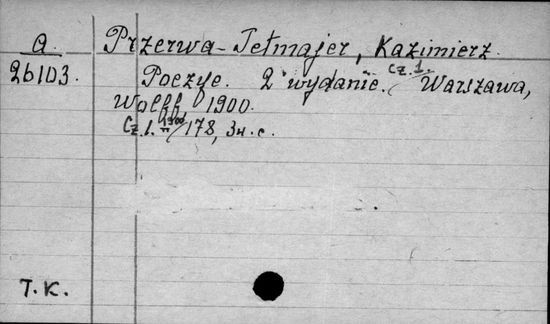 A. Przerwa-Tetmajer, Kazimierz.
26103. Poezye. 2 wydanie. Cz. 1. Warszawa,
Wolff 1900.
Cz. 1. 1900 / 178, 3н. с.
Т.К.